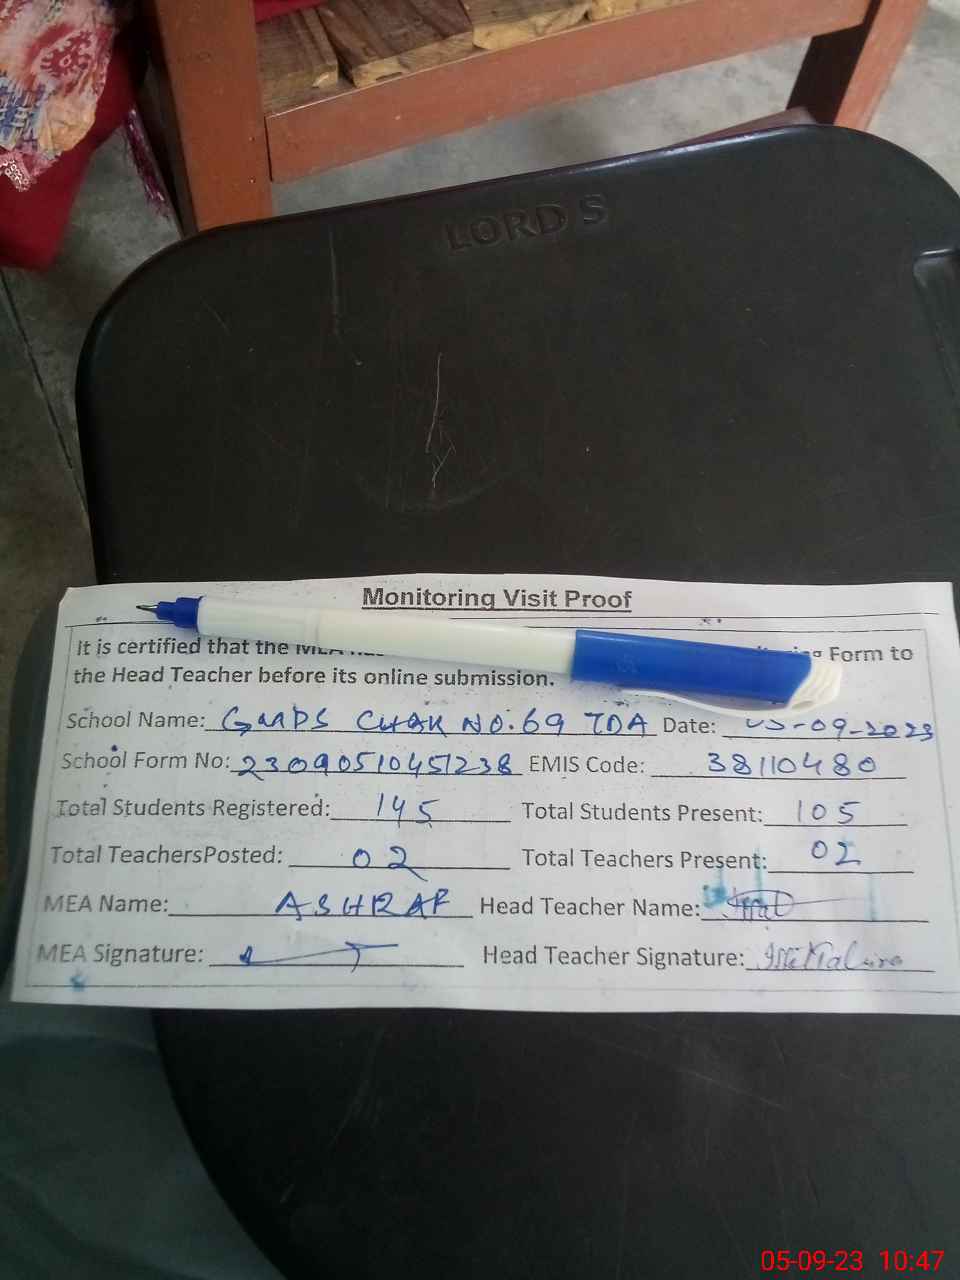 LORD S
Monitoring Visit Proof
It is certified that the Form to
the Head Teacher before its online submission.
School Name: GMPS CHAK NO.69 TDA Date: 05-09-2023
School Form No: 23090510451238 EMIS Code: 38110480
Total Students Registered: 145 Total Students Present: 105
Total TeachersPosted: 02 Total Teachers Present: 02
MEA Name: ASHRAF Head Teacher Name:
MEA Signature: Head Teacher Signature:
05-09-23 10:47